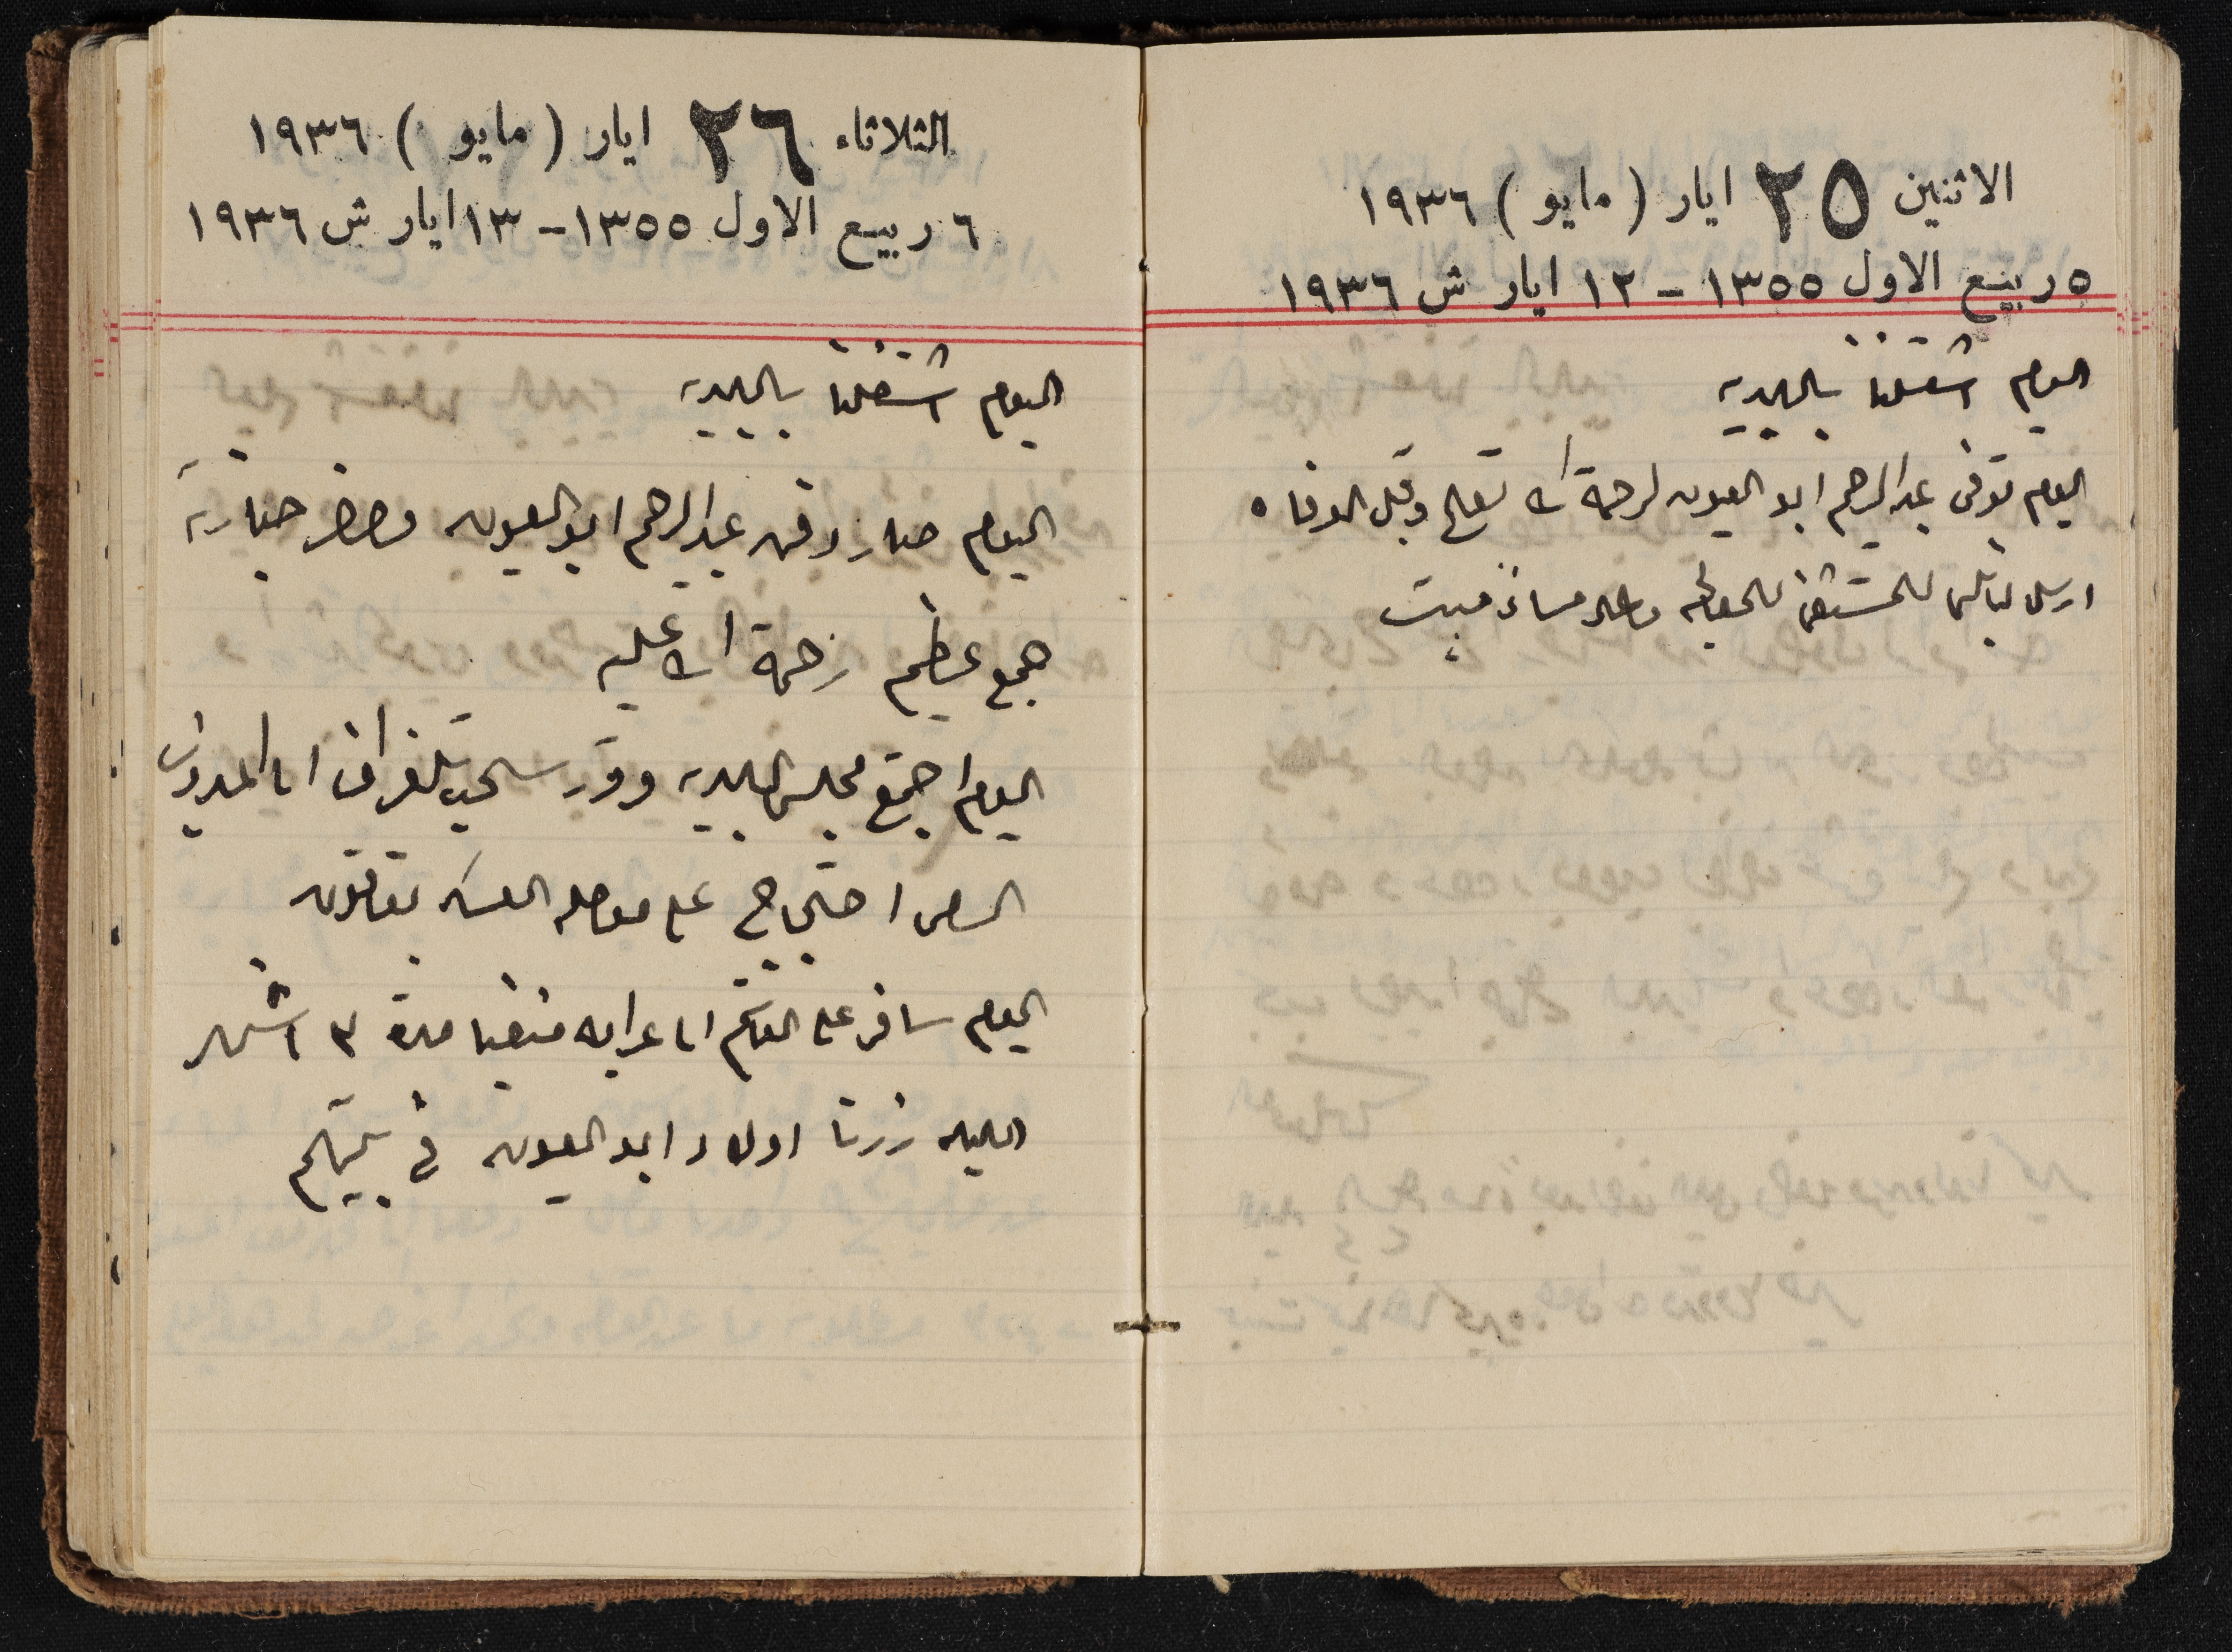 الاثنين ٢٥ ايار ( مايو ) ١٩٣٦
٥ ربيع الاول ١٣٥٥ - ١٢ ايار ش ١٩٣٦
اليوم اشتغلنا بالبلديه
اليوم توفى عبد الرحيم ابو العيون لرحمة الله تعالى وقبل الوفاه
ارسل للمستشفى
الثلاثاء ٢٦ ايار ( مايو ) ١٩٣٦
٦ ربيع الاول ١٣٥٥ - ١٣ ايار ش ١٩٣٦
اليوم اشتغلنا بالبلديه
اليوم صار دفن عبد الرحيم ابو العيون وحضر جنازته
جمع عظيم رحمة الله عليه
اليوم اجتمع مجلس البلديه وقرر سحب تلغراف الى المندوب
السامي احتجاج على
اليوم سافر على القاسم الى منفيا مدة ٣ اشهر
الليله زرنا اولاد ابو العيون في بيتهم